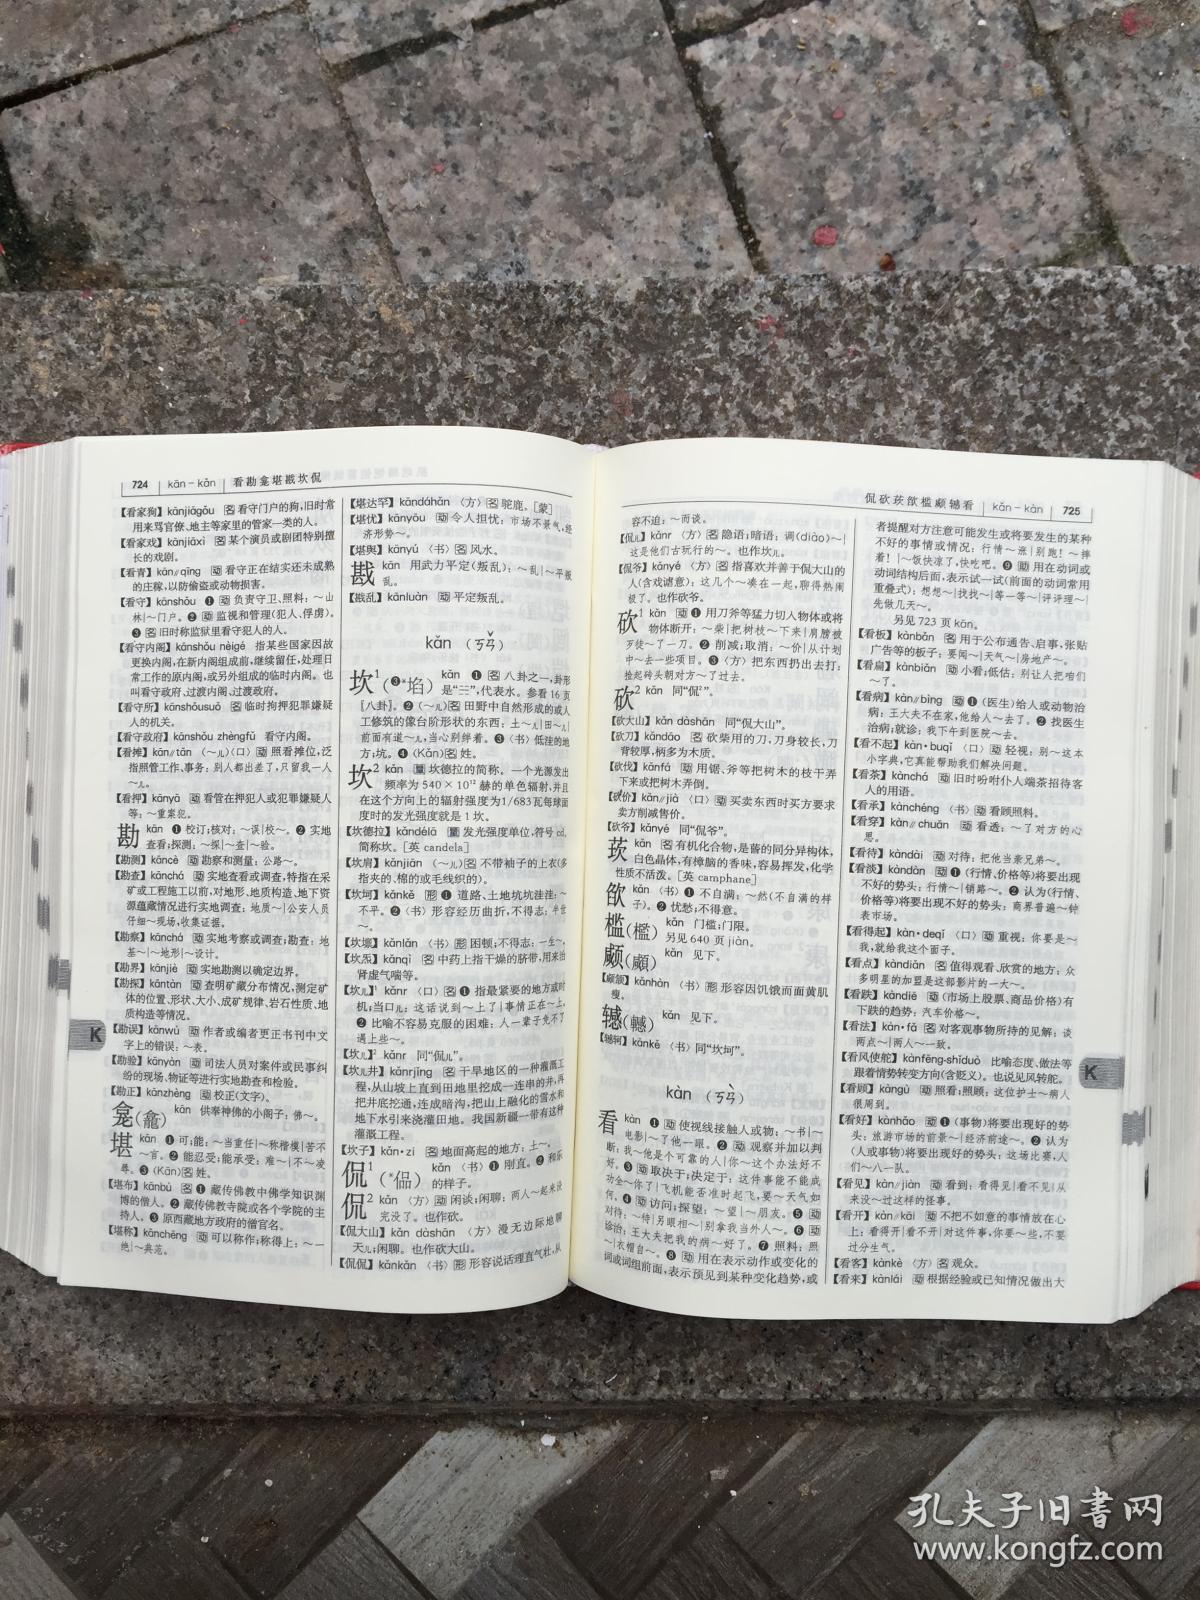 724 kān－kǎn 看勘龛堪戡坎侃
【看家狗】kānjiāgǒu 名 看守门户的狗,旧时常
用来骂官僚、地主等家里的管家一类的人。
【看家戏】kānjiāxì 名 某个演员或剧团特别擅
长的戏剧。
【看青】kān∥qīng 动 看守正在结实还未成熟
的庄稼,以防偷盗或动物损害。
【看守】kānshǒu ❶ 动 负责守卫、照料：～山
林|～门户。❷ 动 监视和管理(犯人、俘虏)。
❸ 名 旧时称监狱里看守犯人的人。
【看守内阁】kānshǒu nèigé 指某些国家因故
更换内阁,在新内阁组成前,继续留任,处理日
常工作的原内阁,或另外组成的临时内阁。也
叫看守政府、过渡内阁、过渡政府。
【看守所】kānshǒusuǒ 名 临时拘押犯罪嫌疑
人的机关。
【看守政府】kānshǒu zhèngfǔ 看守内阁。
【看摊】kān∥tān (～儿)〈口〉动 照看摊位,泛
指照管工作、事务：别人都出差了,只留我一人
～儿。
【看押】kānyā 动 看管在押犯人或犯罪嫌疑人
等：～重案犯。
勘 kān ❶ 校订;核对：～误|校～。❷ 实地
查看;探测：～探|～查|～验。
【勘测】kāncè 动 勘察和测量：公路～。
【勘查】kānchá 动 实地查看或调查,特指在采
矿或工程施工以前,对地形、地质构造、地下资
源蕴藏情况进行实地调查：地质～|公安人员
仔细～现场,收集证据。
【勘察】kānchá 动 实地考察或调查;勘查：地
基～|～地形|～设计。
【勘界】kānjiè 动 实地勘测以确定边界。
【勘探】kāntàn 动 查明矿藏分布情况,测定矿
体的位置、形状、大小、成矿规律、岩石性质、地
质构造等情况。
【勘误】kānwù 动 作者或编者更正书刊中文
字上的错误：～表。
【勘验】kānyàn 动 司法人员对案件或民事纠
纷的现场、物证等进行实地勘查和检验。
【勘正】kānzhèng 动 校正(文字)。
龛(龕) kān 供奉神佛的小阁子：佛～。
堪 kān ❶ 可;能：～当重任|～称楷模|苦不
～言。❷ 能忍受;能承受：难～|不～凌
辱。❸ (Kān) 名 姓。
【堪布】kānbù 名 ❶ 藏传佛教中佛学知识渊
博的僧人。❷ 藏传佛教寺院或各个学院的主
持人。❸ 原西藏地方政府的僧官名。
【堪称】kānchēng 动 可以称作;称得上：～一
绝|～典范。
【堪达罕】kāndáhǎn 〈方〉名 驼鹿。[蒙]
【堪忧】kānyōu 动 令人担忧：市场不景气,经
济形势～。
【堪舆】kānyú 〈书〉名 风水。
戡 kān 用武力平定(叛乱)：～乱|～平叛
乱。
【戡乱】kānluàn 动 平定叛乱。
kǎn (ㄎㄢˇ)
坎1(❸*埳) kǎn ❶ 名 八卦之一,卦形
是“☵”,代表水。参看16页
[八卦]。❷ (～儿) 名 田野中自然形成的或人
工修筑的像台阶形状的东西：土～儿|田～儿|
前面有道～儿,当心别绊着。❸〈书〉低洼的地
方;坑。❹ (Kǎn) 名 姓。
坎2 kǎn 量 坎德拉的简称。一个光源发出
频率为540×10¹²赫的单色辐射,并且
在这个方向上的辐射强度为1/683瓦每球面
度时的发光强度就是1坎。
【坎德拉】kǎndélā 量 发光强度单位,符号cd。
简称坎。[英 candela]
【坎肩】kǎnjiān (～儿) 名 不带袖子的上衣(多
指夹的、棉的或毛线织的)。
【坎坷】kǎnkě 形 ❶ 道路、土地坑坑洼洼：～
不平。❷〈书〉形容经历曲折,不得志：半世
～。
【坎壈】kǎnlǎn 〈书〉形 困顿;不得志：一生～。
【坎炁】kǎnqì 名 中药上指干燥的脐带,用来治
肾虚气喘等。
【坎儿】1 kǎnr 〈口〉名 ❶ 指最紧要的地方或时
机;当口儿：这话说到～上了|事情正在～上。
❷ 比喻不容易克服的困难：人一辈子免不了
遇上些～。
【坎儿】2 kǎnr 同“侃儿”。
【坎儿井】kǎnrjǐng 名 干旱地区的一种灌溉工
程,从山坡上直到田地里挖成一连串的井,再
把井底挖通,连成暗沟,把山上融化的雪水和
地下水引来浇灌田地。我国新疆一带有这种
灌溉工程。
【坎子】kǎn·zi 名 地面高起的地方：土～。
侃1(*偘) kǎn 〈书〉❶ 刚直。❷ 和乐
的样子。
侃2 kǎn 〈方〉动 闲谈;闲聊：两人～起来没
完没了。也作砍。
【侃大山】kǎn dàshān 〈方〉漫无边际地聊
天儿;闲聊。也作砍大山。
【侃侃】kǎnkǎn 〈书〉形 形容说话理直气壮,从
K
侃砍莰欿槛顑轗看 kǎn－kàn 725
容不迫：～而谈。
【侃儿】kǎnr 〈方〉名 隐语;暗语：调(diào)～|
这是他们古玩行的～。也作坎儿。
【侃爷】kǎnyé 〈方〉名 指喜欢并善于侃大山的
人(含戏谑意)：这几个～凑在一起,聊得热闹
极了。也作砍爷。
砍1 kǎn 动 ❶ 用刀斧等猛力切入物体或将
物体断开：～柴|把树枝～下来|肩膀被
歹徒～了一刀。❷ 削减;取消：～价|从计划
中～去一些项目。❸〈方〉把东西扔出去打：
捡起砖头朝对方～了过去。
砍2 kǎn 同“侃2”。
【砍大山】kǎn dàshān 同“侃大山”。
【砍刀】kǎndāo 名 砍柴用的刀,刀身较长,刀
背较厚,柄多为木质。
【砍伐】kǎnfá 动 用锯、斧等把树木的枝干弄
下来或把树木弄倒。
【砍价】kǎn∥jià 〈口〉动 买卖东西时买方要求
卖方削减售价。
【砍爷】kǎnyé 同“侃爷”。
莰 kǎn 名 有机化合物,是蒈的同分异构体,
白色晶体,有樟脑的香味,容易挥发,化学
性质不活泼。[英 camphane]
欿 kǎn 〈书〉❶ 不自满：～然(不自满的样
子)。❷ 忧愁;不得意。
槛(檻) kǎn 门槛;门限。
另见640页 jiàn。
顑(顑) kǎn 见下。
【顑颔】kǎnhàn 〈书〉形 形容因饥饿而面黄肌
瘦。
轗(轗) kǎn 见下。
【轗轲】kǎnkě 〈书〉同“坎坷”。
kàn (ㄎㄢˋ)
看 kàn ❶ 动 使视线接触人或物：～书|～
电影|～了他一眼。❷ 动 观察并加以判
断：我～他是个可靠的人|你～这个办法好不
好。❸ 动 取决于;决定于：这件事能不能成
功全～你了|飞机能否准时起飞,要～天气如
何。❹ 动 访问;探望：～望|～朋友。❺ 动
对待：～待|另眼相～|别拿我当外人～。❻ 动
诊治：王大夫把我的病～好了。❼ 照料：照
～|衣帽自～。❽ 动 用在表示动作或变化的
词或词组前面,表示预见到某种变化趋势,或
者提醒对方注意可能发生或将要发生的某种
不好的事情或情况：行情～涨|别跑！～摔
着！|～饭快凉了,快吃吧。❾ 助 用在动词或
动词结构后面,表示试一试(前面的动词常用
重叠式)：想想～|找找～|等一等～|评评理～|
先做几天～。
另见723页 kān。
【看板】kànbǎn 名 用于公布通告、启事,张贴
广告等的板子：要闻～|天气～|房地产～。
【看扁】kànbiǎn 动 小看;低估：别让人把咱们
～了。
【看病】kàn∥bìng 动 ❶ (医生)给人或动物治
病：王大夫不在家,他给人～去了。❷ 找医生
治病;就诊：我下午到医院～去。
【看不起】kàn·buqǐ 〈口〉动 轻视：别～这本
小字典,它真能帮助我们解决问题。
【看茶】kànchá 动 旧时吩咐仆人端茶招待客
人的用语。
【看承】kànchéng 〈书〉动 看顾照料。
【看穿】kàn∥chuān 动 看透：～了对方的心
思。
【看待】kàndài 动 对待：把他当亲兄弟～。
【看淡】kàndàn 动 ❶ (行情、价格等)将要出现
不好的势头：行情～|销路～。❷ 认为(行情、
价格等)将要出现不好的势头：商界普遍～钟
表市场。
【看得起】kàn·deqǐ 〈口〉动 重视：你要是～
我,就给我这个面子。
【看点】kàndiǎn 名 值得观看、欣赏的地方：众
多明星的加盟是这部影片的一大～。
【看跌】kàndiē 动 (市场上股票、商品价格)有
下跌的趋势：汽车价格～。
【看法】kàn·fǎ 名 对客观事物所持的见解：谈
两点～|两人～一致。
【看风使舵】kànfēng-shǐduò 比喻态度、做法等
跟着情势转变方向(含贬义)。也说见风转舵。
【看顾】kàngù 动 照看;照顾：这位护士～病人
很周到。
【看好】kànhǎo 动 ❶ (事物)将要出现好的势
头：旅游市场的前景～|经济前途～。❷ 认为
(人或事物)将要出现好的势头：这场比赛,人
们～八一队。
【看见】kàn∥jiàn 动 看到：看得见|看不见|从
来没～过这样的怪事。
【看开】kàn∥kāi 动 不把不如意的事情放在心
上：看得开|看不开|对这件事,你要～些,不要
过分生气。
【看客】kànkè 〈方〉名 观众。
【看来】kànlái 动 根据经验或已知情况做出大
K
孔夫子旧书网
www.kongfz.com